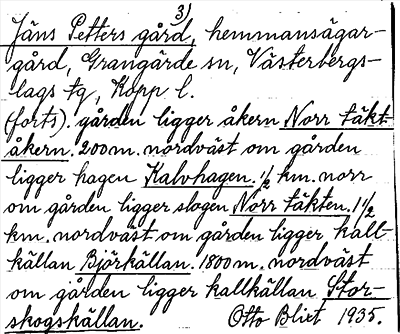 3)
Jäns Petters gård, hemmansägar-
gård, Grangärde sn, Västerbergs-
lags tg, Kopp l.
(forts). gården ligger åkern Norr täkt-
åkern. 200 m. nordväst om gården
ligger hagen Kalvhagen. 1/2 km. norr
om gården ligger slogen Norr täkten. 1 1/2
km. nordväst om gården ligger kall-
källan Björkällan. 1800 m. nordväst
om gården ligger kallkällan Stor-
skogskällan. Otto Blixt 1935.